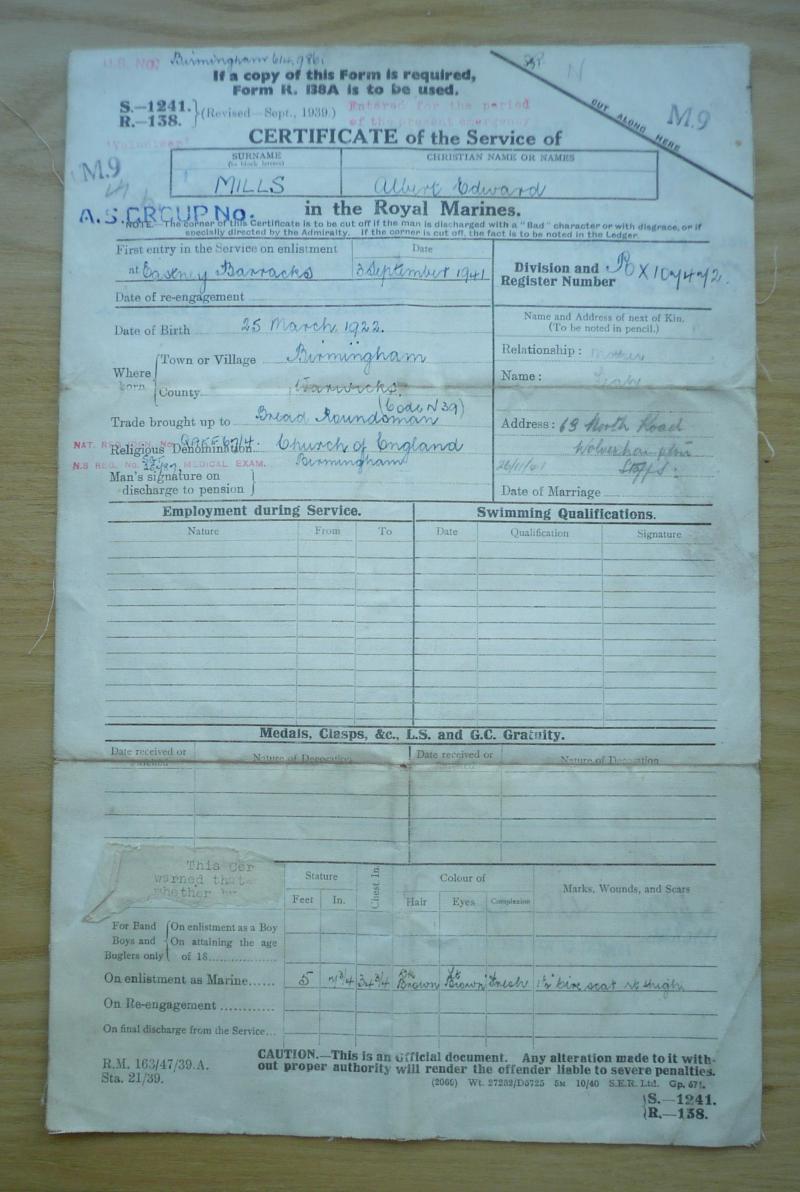 U.S. No. Birmingham
If a copy of this Form is required,
Form R. 138A is to be used.
N
S.—1241.
R.—138. (Revised—Sept., 1939.)
Entered for the period
of the present emergency
"Volunteer"
CUT ALONG HERE
M.9
CERTIFICATE of the Service of
M.9
SURNAME
(In block letters)
CHRISTIAN NAME OR NAMES
MILLS
Albert Edward
A.S. GROUP No.
in the Royal Marines.
NOTE.—The corner of this Certificate is to be cut off if the man is discharged with a "Bad" character or with disgrace, or if
specially directed by the Admiralty. If the corner is cut off, the fact is to be noted in the Ledger.
First entry in the Service on enlistment
Date
at Barracks
3 September 1941
Date of re-engagement
Division and
Register Number
X 107472.
Date of Birth 25 March, 1922.
Where born
Town or Village Birmingham
County Warwicks.
Name and Address of next of Kin.
(To be noted in pencil.)
Relationship: Mother
Name:
Trade brought up to Bread Roundsman
(Code N 39)
NAT. REG. IDEN. No. QAKE 67/4.
Religious Denomination Church of England
N.S REG. No. MEDICAL EXAM. Birmingham
Man's signature on
discharge to pension
Address: 63 North Road
Wolverhampton
Staffs.
Date of Marriage
Employment during Service.
Nature
From
To
Swimming Qualifications.
Date
Qualification
Signature
Medals, Clasps, &c., L.S. and G.C. Gratuity.
Date received or
Nature of Decoration
Date received or
Nature of Decoration
This Cer
warned that
whether
Stature
Feet
In.
Chest. In.
Colour of
Hair
Eyes
Complexion
Marks, Wounds, and Scars
For Band
Boys and
Buglers only
On enlistment as a Boy
On attaining the age
of 18
On enlistment as Marine 5 7¾ 34¾ Dk Brown Lt Brown Fresh scar thigh
On Re-engagement
On final discharge from the Service
R.M. 163/47/39.A.
Sta. 21/39.
CAUTION.—This is an official document. Any alteration made to it with-
out proper authority will render the offender liable to severe penalties.
(2066) Wt. 27232/D5725 5M 10/40 S.E.R. Ltd. Gp. 671.
S.—1241.
R.—138.